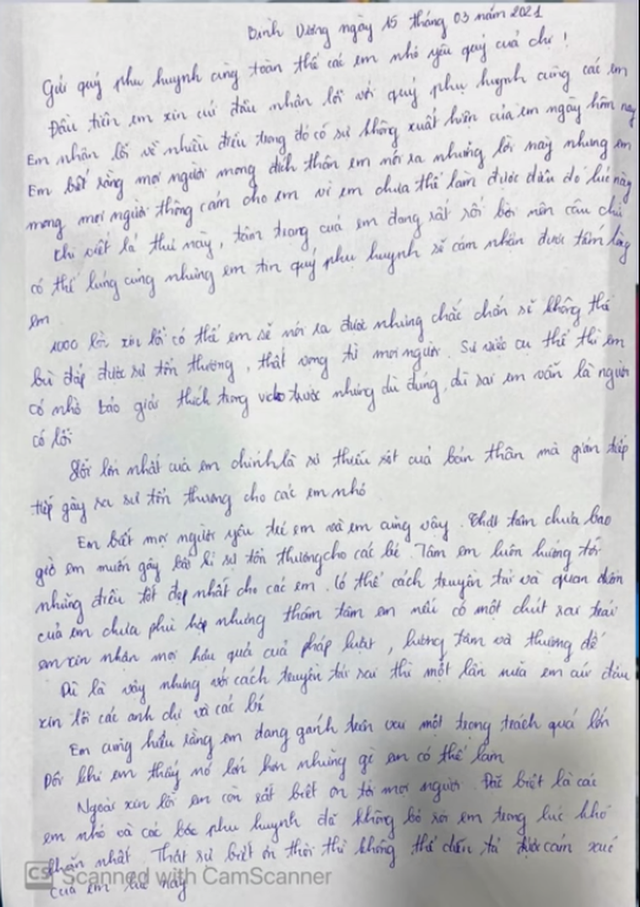 Bình Dương ngày 15 tháng 03 năm 2021
Gửi quý phụ huynh cùng toàn thể các em nhỏ yêu quý của chị!
Đầu tiên em xin cúi đầu nhân lỗi với quý phụ huynh cùng các em
Em nhận lỗi về nhiều điều trong đó có sự không xuất hiện của em ngày hôm nay
Em biết rằng mọi người mong đích thân em nói ra những lời này nhưng em
mong mọi người thông cảm cho em vì em chưa thể làm được điều đó lúc này
Khi viết lá thư này, tâm trạng của em đang rất rối bời nên câu chữ
có thể lủng củng nhưng em tin quý phụ huynh sẽ cảm nhận được tấm lòng
em
1000 lời xin lỗi có thể em sẽ nói ra được nhưng chắc chắn sẽ không thể
bù đắp được sự tổn thương, thất vọng từ mọi người. Sự việc cụ thể thì em
có nhờ bảo giải thích trong video trước nhưng dù đúng, dù sai em vẫn là người
có lỗi
Lỗi lớn nhất của em chính là sự thiếu sót của bản thân mà gián tiếp
tiếp gây ra sự tổn thương cho các em nhỏ
Em biết mọi người yêu trẻ em và em cũng vậy. Thật tâm chưa bao
giờ em muốn gây bất kì sự tổn thương cho các bé. Tâm em luôn hướng tới
những điều tốt đẹp nhất cho các em. Có thể cách truyền tải và quan điểm
của em chưa phù hợp nhưng thâm tâm em nếu có một chút sai trái
em xin nhận mọi hậu quả của pháp luật, lương tâm và thượng đế
Dù là vậy nhưng với cách truyền tải sai thì một lần nữa em cúi đầu
xin lỗi các anh chị và các bé
Em cũng hiểu rằng em đang gánh trên vai một trọng trách quá lớn
Đôi khi em thấy nó lớn hơn những gì em có thể làm
Ngoài xin lỗi em còn rất biết ơn tới mọi người. Đặc biệt là các
em nhỏ và các bậc phụ huynh đã không bỏ rơi em trong lúc khó
khăn nhất. Thật sự biết ơn thôi thì không thể diễn tả được cảm xúc
của em lúc này
CS Scanned with CamScanner